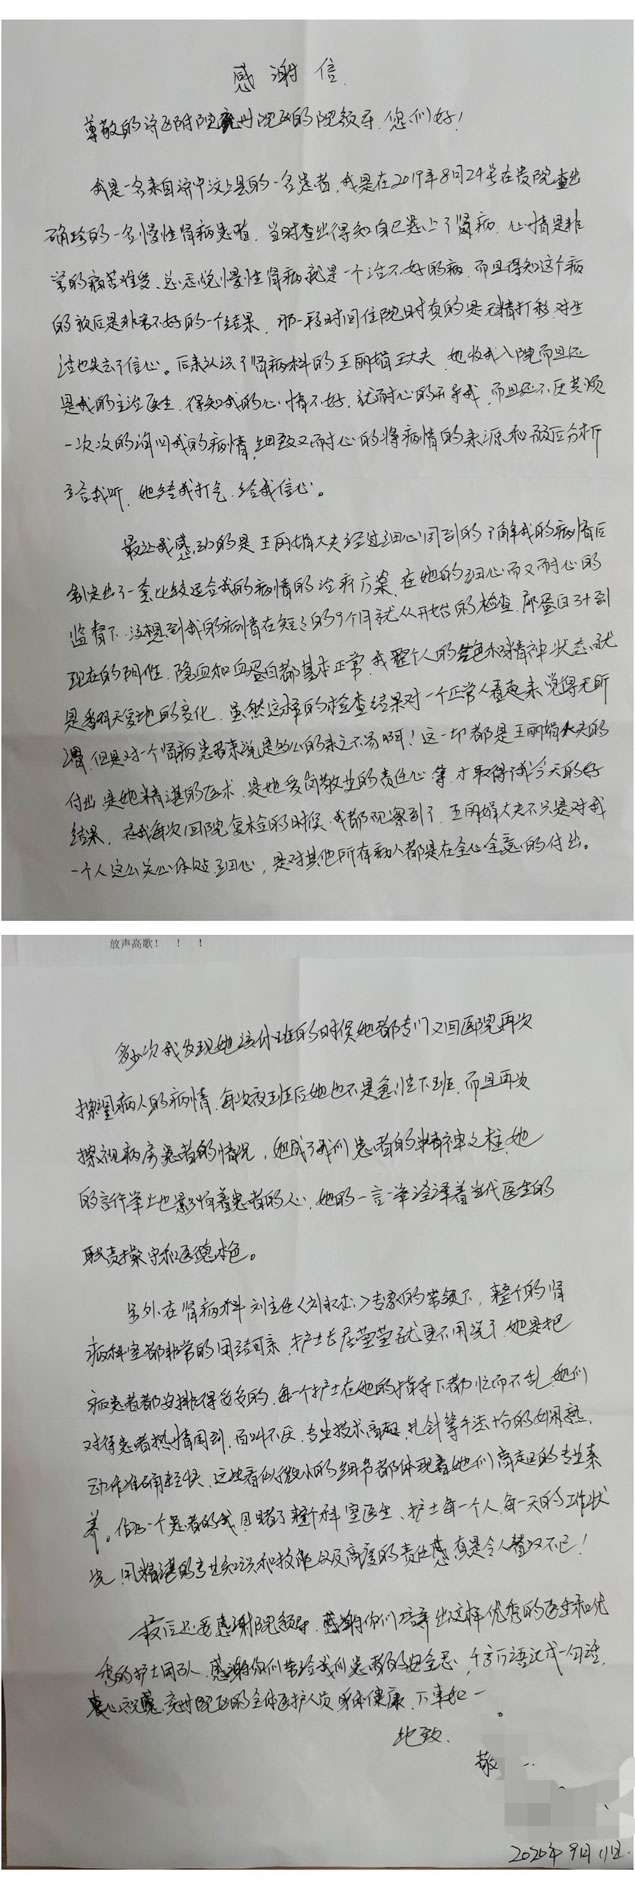 感谢信.
尊敬的济医附院兖州院区的院领导.您们好!
我是一名来自济宁汶上县的一名患者,我是在2019年8月24号在贵院查出
确诊的一名慢性肾病患者.当时查出得知自己患上了肾病.心情是非
常的痛苦难受.总听说慢性肾病就是一个治不好的病.而且得知这个病
的最后是非常不好的一个结果.那一段时间住院时真的是无精打彩.对生
活也失去了信心。后来认识了肾病科的王丽娟大夫.她收我入院而且还
是我的主治医生.得知我的心情不好.就耐心的开导我,而且还不厌其烦
一次次的询问我的病情,细致又耐心的将病情的来源和预后分析
给我听.她给我打气.给我信心。
最让我感动的是王丽娟大夫经过细心周到的了解我的病情后
制定出了一套比较适合我的病情的治疗方案.在她的细心而又耐心的
监督下.没想到我的病情在短短的9个月就从开始的检查.尿蛋白3+到
现在的阴性.隐血和血蛋白都基本正常.我整个人的和精神状态就
是翻天复地的变化.虽然这样的检查结果对一个正常人看起来觉得无所
谓,但是对一个肾病患者来说是多么的来之不易啊!这一切都是王丽娟大夫的
付出.是她精湛的医术.是她爱岗敬业的责任心等.才取得我今天的好
结果.在我每次回院复检的时候.我都观察到了.王丽娟大夫不只是对我
一个人这么关心体贴.细心,是对其他所有病人都是在全心全意的付出。
放声高歌! ! !
多次我发现她该休班的时候她都专门又回医院再次
探望病人的病情.每次夜班后她也不是急忙下班.而且再次
探视病房患者的情况,她成了我们患者的精神支柱.她
的言行举止也影响着患者的心.她的一言一举诠译着当代医生的
职责操守和医德本色。
另外在肾病科刘主任专家的带领下,整个的肾
病科室都非常的用活可亲.护士长居莹莹就更不用说了.她是把
和患者都安排得妥妥的.每一个护士在她的指导下都忙而不乱.她们
对待患者热情周到.百叫不厌.专业技术高超.扎针等手法十分的娴熟.
动作准确轻快.这些看似微小的细节都体现着她们高超的专业素
养。作为一个患者的我.目睹了整个科室医生、护士每一个人.每一天的工作状
况.用精湛的专业知识和技能以及高度的责任感真是令人赞叹不已!
最后还要感谢院领导.感谢你们培养出这样优秀的医生和优
秀的护士团队.感谢你们带给我们患者的安全感,千言万语汇成一句话.
衷心祝愿兖州院区的全体医护人员身体健康.万事如一。
此致.
敬
2020年9月11日.